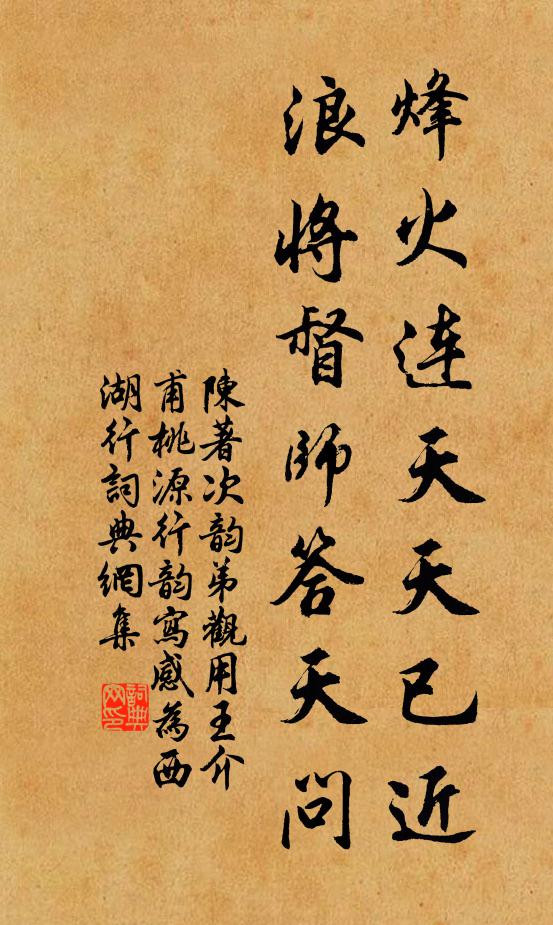 烽火连天天已近
浪将督師答天問
陳著次韵弟觀用王介
甫桃源行韵寫感為西
湖行詞典網集
詞典
网印